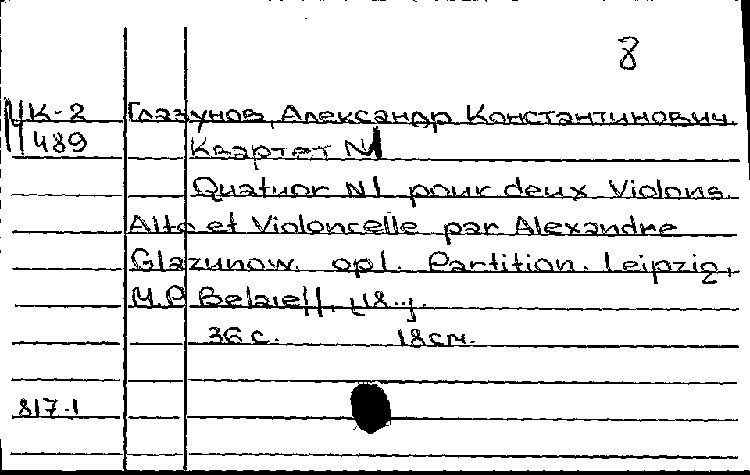 8
К-2 Глазунов, Александр Константинович.
489 Квартет N1
Quatuor N1 pour deux Violons.
Alto et Violoncelle par Alexandre
Glazunow. op1. Partition. Leipzig,
M.P. Belaieff, [18..].
36 с. 18 см.
817-1